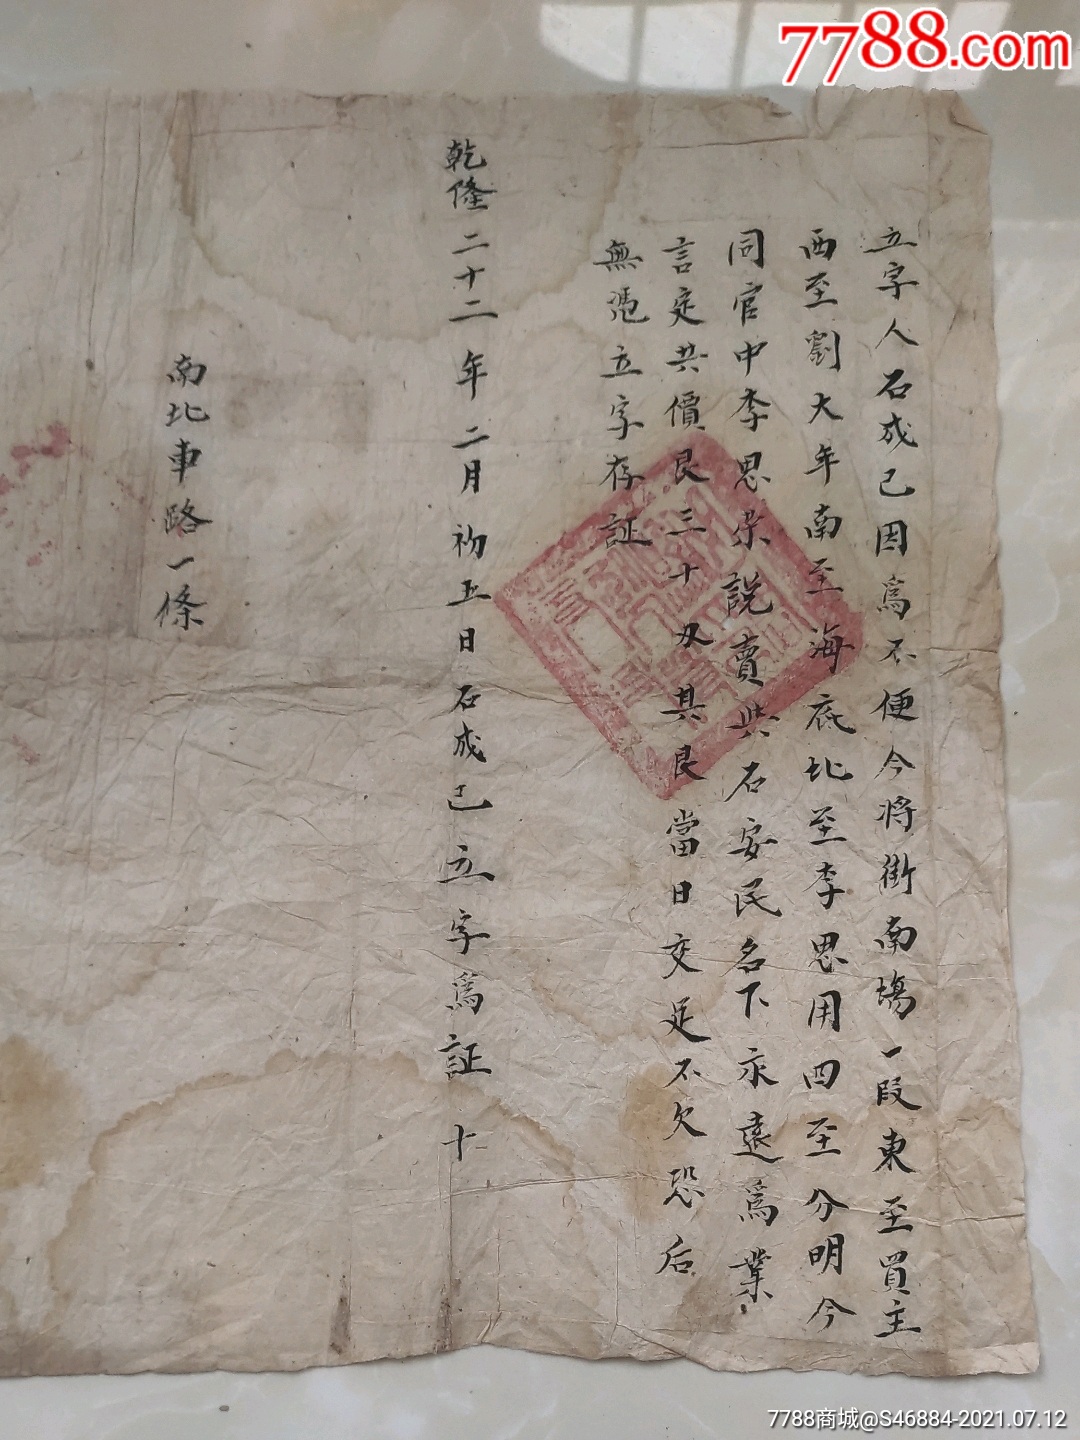 7788.com
立字人石成己因爲不便今將街南塲一段東至買主
西至劉大年南至海底北至李思用四至分明今
同官中李思荣說賣與石安民名下永遠爲業
言定共價艮三十又其艮當日交足不欠恐后
無憑立字存証
乾隆二十二年二月初五日石成己立字爲証十
南北車路一條
7788商城@S46884-2021.07.12